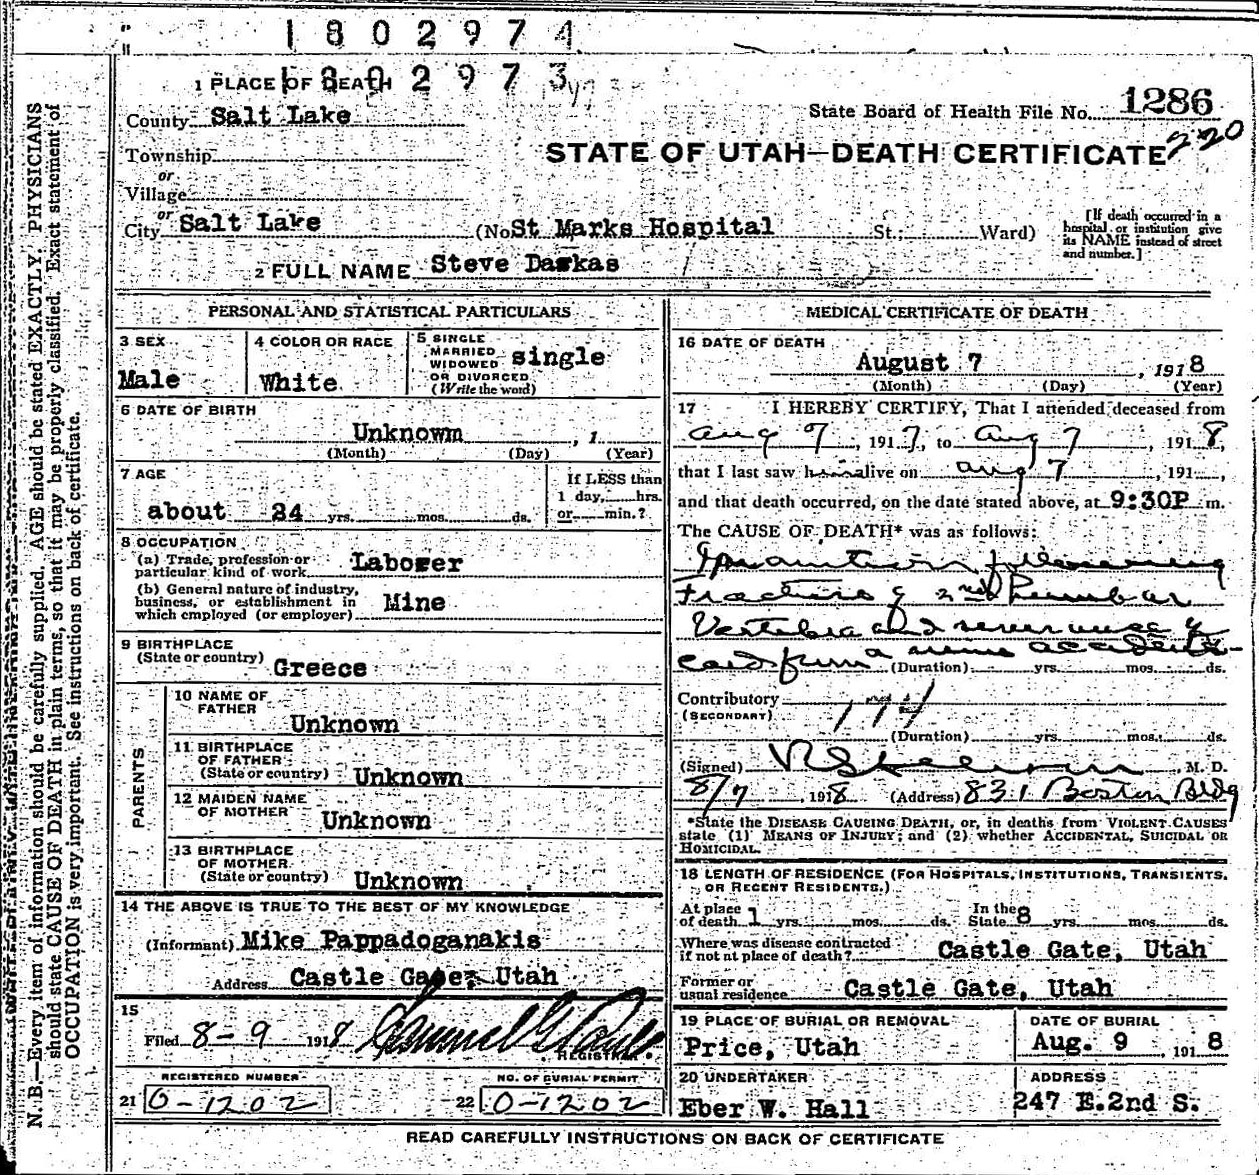 1802974
1802973
1 PLACE OF DEATH
County Salt Lake
State Board of Health File No. 1286
220
Township
or
Village
or
City Salt Lake (No St Marks Hospital St.; Ward)
STATE OF UTAH—DEATH CERTIFICATE
[If death occurred in a hospital or institution give its NAME instead of street and number.]
2 FULL NAME Steve Daskas
PERSONAL AND STATISTICAL PARTICULARS
3 SEX
Male
4 COLOR OR RACE
White
5 SINGLE
MARRIED
WIDOWED
OR DIVORCED
(Write the word)
single
6 DATE OF BIRTH
Unknown , 1
(Month) (Day) (Year)
7 AGE
about 34 yrs. mos. ds.
If LESS than
1 day, hrs.
or min.?
8 OCCUPATION
(a) Trade, profession or
particular kind of work Laborer
(b) General nature of industry,
business, or establishment in
which employed (or employer) Mine
9 BIRTHPLACE
(State or country) Greece
PARENTS
10 NAME OF
FATHER
Unknown
11 BIRTHPLACE
OF FATHER
(State or country) Unknown
12 MAIDEN NAME
OF MOTHER
Unknown
13 BIRTHPLACE
OF MOTHER
(State or country) Unknown
14 THE ABOVE IS TRUE TO THE BEST OF MY KNOWLEDGE
(Informant) Mike Pappadoganakis
Address Castle Gate, Utah
15
Filed 8-9 1918
REGISTRAR.
REGISTERED NUMBER
21 0-1202
NO. OF BURIAL PERMIT
22 0-1202
MEDICAL CERTIFICATE OF DEATH
16 DATE OF DEATH
August 7 , 1918
(Month) (Day) (Year)
17 I HEREBY CERTIFY, That I attended deceased from
Aug 7, 1917, to Aug 7, 1918,
that I last saw him alive on Aug 7, 191
and that death occurred, on the date stated above, at 9:30P m.
The CAUSE OF DEATH* was as follows:
following
of 2nd Lumbar
Vertebra and severance of
cord from a mine accident
(Duration) yrs. mos. ds.
Contributory
(SECONDARY) 174
(Duration) yrs. mos. ds.
(Signed) , M. D.
8/7, 1918 (Address) 831 Boston Bldg
*State the DISEASE CAUSING DEATH, or, in deaths from VIOLENT CAUSES
state (1) MEANS OF INJURY; and (2) whether ACCIDENTAL, SUICIDAL OR
HOMICIDAL.
18 LENGTH OF RESIDENCE (FOR HOSPITALS, INSTITUTIONS, TRANSIENTS,
OR RECENT RESIDENTS.)
At place
of death 1 yrs. mos. ds. In the
State 8 yrs. mos. ds.
Where was disease contracted
if not at place of death? Castle Gate, Utah
Former or
usual residence Castle Gate, Utah
19 PLACE OF BURIAL OR REMOVAL
Price, Utah
DATE OF BURIAL
Aug. 9 , 1918
20 UNDERTAKER
Eber W. Hall
ADDRESS
247 E.2nd S.
READ CAREFULLY INSTRUCTIONS ON BACK OF CERTIFICATE
N. B.—Every item of information should be carefully supplied. AGE should be stated EXACTLY. PHYSICIANS
should state CAUSE OF DEATH in plain terms, so that it may be properly classified. Exact statement of
OCCUPATION is very important. See instructions on back of certificate.